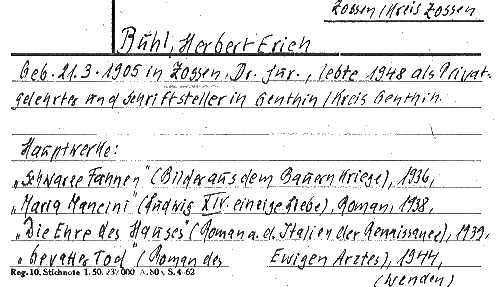 Zossen/Kreis Zossen
Buhl, Herbert Erich
Geb. 21.3.1905 in Zossen, Dr. jur., lebte 1948 als Privat-
gelehrter und Schriftsteller in Genthin/Kreis Genthin.
Hauptwerke:
„Schwarze Fahnen" (Bilder aus dem Bauernkriege), 1936,
„Maria Mancini" (Ludwig XIV. einzige Liebe), Roman, 1938,
„Die Ehre des Hauses" (Roman a. d. Italien der Renaissance), 1939,
„Gevatter Tod" (Roman des Ewigen Arztes), 1944,
(wenden)
Reg. 10. Stichnote 1. 50. 237000 S. 4-62